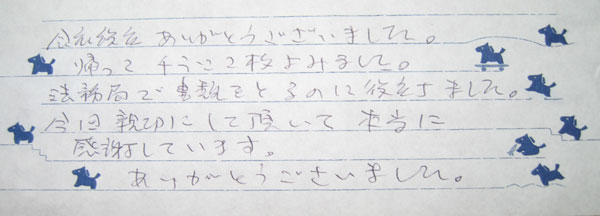 ありがとうございました。
帰って チラシ2枚よみました。
法務局で書類をとるのに役立ちました。
今回親切にして頂いて 本当に
感謝しています。
ありがとうございました。